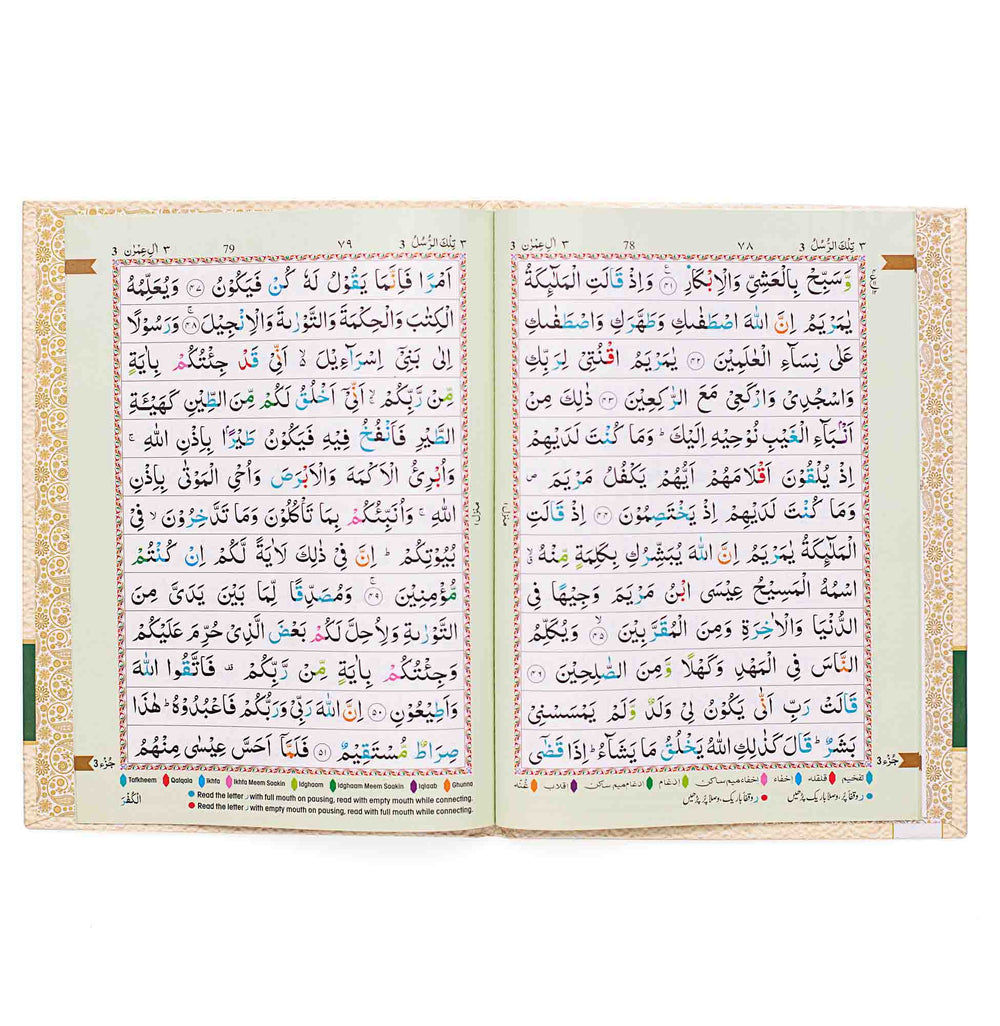 ٣ تِلْكَ الرُّسُلُ 3
٧٨
78
٣ اٰلِ عِمْرٰن 3
وَّسَبِّحْ بِالْعَشِيِّ وَالْاِبْكَارِ ۝٤١ وَاِذْ قَالَتِ الْمَلٰٓئِكَةُ
يٰمَرْيَمُ اِنَّ اللّٰهَ اصْطَفٰىكِ وَطَهَّرَكِ وَاصْطَفٰىكِ
عَلٰى نِسَآءِ الْعٰلَمِيْنَ ۝٤٢ يٰمَرْيَمُ اقْنُتِيْ لِرَبِّكِ
وَاسْجُدِيْ وَارْكَعِيْ مَعَ الرّٰكِعِيْنَ ۝٤٣ ذٰلِكَ مِنْ
اَنْۢبَآءِ الْغَيْبِ نُوْحِيْهِ اِلَيْكَ ؕ وَمَا كُنْتَ لَدَيْهِمْ
اِذْ يُلْقُوْنَ اَقْلَامَهُمْ اَيُّهُمْ يَكْفُلُ مَرْيَمَ ۪
وَمَا كُنْتَ لَدَيْهِمْ اِذْ يَخْتَصِمُوْنَ ۝٤٤ اِذْ قَالَتِ
الْمَلٰٓئِكَةُ يٰمَرْيَمُ اِنَّ اللّٰهَ يُبَشِّرُكِ بِكَلِمَةٍ مِّنْهُ ۖۗ
اسْمُهُ الْمَسِيْحُ عِيْسَى ابْنُ مَرْيَمَ وَجِيْهًا فِي
الدُّنْيَا وَالْاٰخِرَةِ وَمِنَ الْمُقَرَّبِيْنَ ۝٤٥ وَيُكَلِّمُ
النَّاسَ فِي الْمَهْدِ وَكَهْلًا وَّمِنَ الصّٰلِحِيْنَ ۝٤٦
قَالَتْ رَبِّ اَنّٰى يَكُوْنُ لِيْ وَلَدٌ وَّلَمْ يَمْسَسْنِيْ
بَشَرٌ ؕ قَالَ كَذٰلِكِ اللّٰهُ يَخْلُقُ مَا يَشَآءُ ؕ اِذَا قَضٰٓى
جُزء 3
تفخيم قلقله إخفاء اخفاء ميم ساكن ادغام ادغام ميم ساكن اقلاب غُنّه
ر وقفاً پُر، وصلاً باريک پڑھیں
ر وقفاً باريک، وصلاً پُر پڑھیں
٣ تِلْكَ الرُّسُلُ 3
٧٩
79
٣ اٰلِ عِمْرٰن 3
اَمْرًا فَاِنَّمَا يَقُوْلُ لَهٗ كُنْ فَيَكُوْنُ ۝٤٧ وَيُعَلِّمُهُ
الْكِتٰبَ وَالْحِكْمَةَ وَالتَّوْرٰىةَ وَالْاِنْجِيْلَ ۝٤٨ وَرَسُوْلًا
اِلٰى بَنِيْٓ اِسْرَآءِيْلَ ۙ اَنِّيْ قَدْ جِئْتُكُمْ بِاٰيَةٍ
مِّنْ رَّبِّكُمْ ۙ اَنِّيْٓ اَخْلُقُ لَكُمْ مِّنَ الطِّيْنِ كَهَيْئَةِ
الطَّيْرِ فَاَنْفُخُ فِيْهِ فَيَكُوْنُ طَيْرًۢا بِاِذْنِ اللّٰهِ ۚ
وَاُبْرِئُ الْاَكْمَهَ وَالْاَبْرَصَ وَاُحْيِ الْمَوْتٰى بِاِذْنِ
اللّٰهِ ۚ وَاُنَبِّئُكُمْ بِمَا تَاْكُلُوْنَ وَمَا تَدَّخِرُوْنَ ۙ فِيْ
بُيُوْتِكُمْ ؕ اِنَّ فِيْ ذٰلِكَ لَاٰيَةً لَّكُمْ اِنْ كُنْتُمْ
مُّؤْمِنِيْنَ ۝٤٩ وَمُصَدِّقًا لِّمَا بَيْنَ يَدَيَّ مِنَ
التَّوْرٰىةِ وَلِاُحِلَّ لَكُمْ بَعْضَ الَّذِيْ حُرِّمَ عَلَيْكُمْ
وَجِئْتُكُمْ بِاٰيَةٍ مِّنْ رَّبِّكُمْ ۫ فَاتَّقُوا اللّٰهَ
وَاَطِيْعُوْنِ ۝٥٠ اِنَّ اللّٰهَ رَبِّيْ وَرَبُّكُمْ فَاعْبُدُوْهُ ؕ هٰذَا
صِرَاطٌ مُّسْتَقِيْمٌ ۝٥١ فَلَمَّآ اَحَسَّ عِيْسٰى مِنْهُمُ
جُزء 3
Tafkheem Qalqala Ikhfa Ikhfa Meem Saakin Idghaam Idghaam Meem Saakin Iqlaab Ghunna
Read the letter ر with full mouth on pausing, read with empty mouth while connecting.
Read the letter ر with empty mouth on pausing, read with full mouth while connecting.
الْكُفْرَ